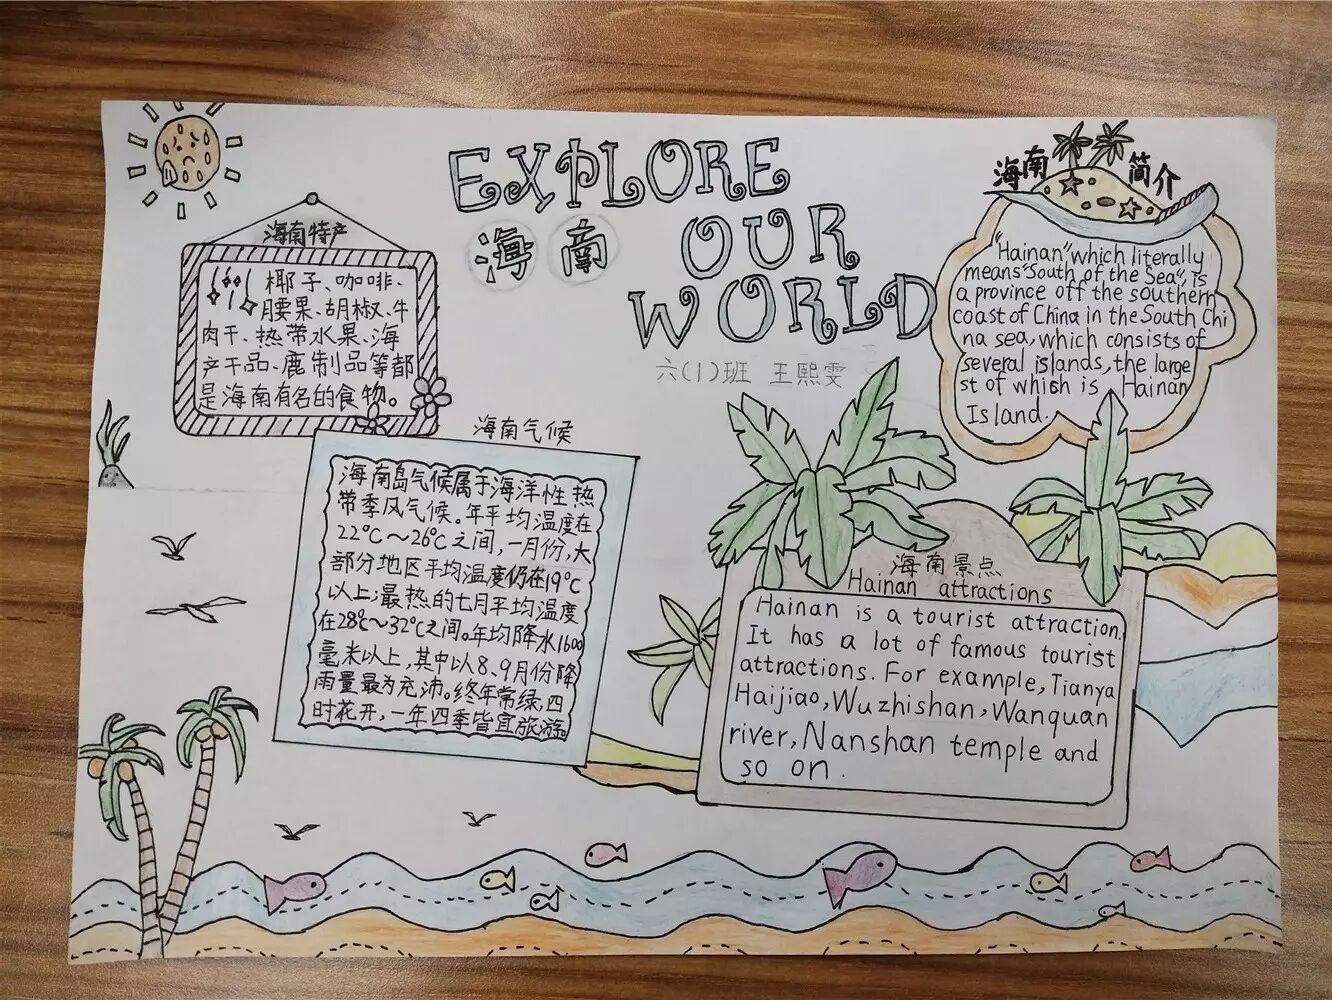 EXPLORE
海南
OUR
WORLD
六(1)班 王熙雯
海南特产
椰子、咖啡、
腰果、胡椒、牛
肉干、热带水果、海
产干品、鹿制品等都
是海南有名的食物。
海南气候
海南岛气候属于海洋性热
带季风气候。年平均温度在
22℃~26℃之间,一月份,大
部分地区平均温度仍在19℃
以上;最热的七月平均温度
在28℃~32℃之间。年均降水1600
毫米以上,其中以8、9月份降
雨量最为充沛。终年常绿,四
时花开,一年四季皆宜旅游。
海南简介
"Hainan"which literally
means"South of the Sea", is
a province off the southern
coast of China in the South Chi
na sea, which consists of
several islands, the large
st of which is Hainan
Island.
海南景点
Hainan attractions
Hainan is a tourist attraction.
It has a lot of famous tourist
attractions. For example, Tianya
Haijiao, Wuzhishan, Wanquan
river, Nanshan temple and
so on.